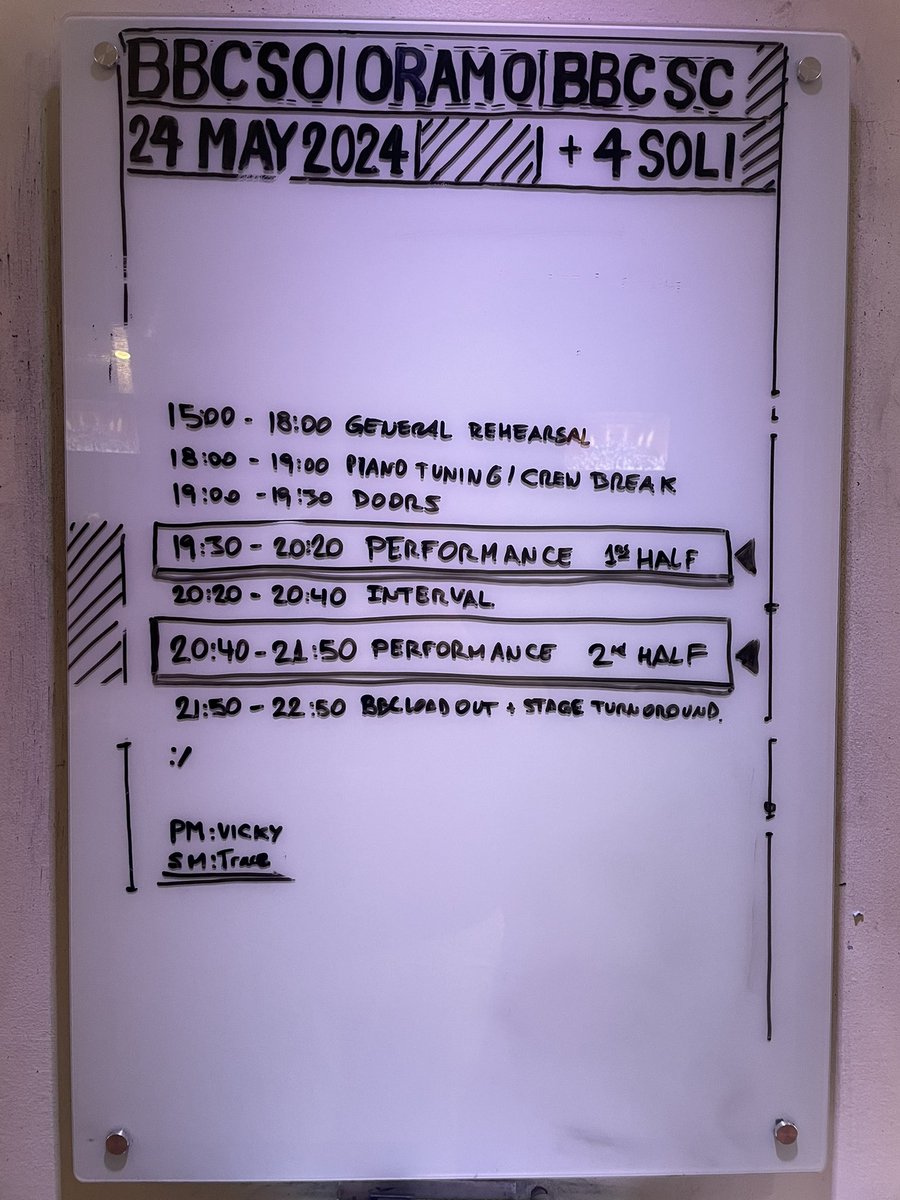 BBCSO|ORAMO|BBCSC
24 MAY 2024 + 4 SOLI
15:00 - 18:00 GENERAL REHEARSAL
18:00 - 19:00 PIANO TUNING / CREW BREAK
19:00 - 19:30 DOORS
19:30 - 20:20 PERFORMANCE 1ST HALF
20:20 - 20:40 INTERVAL
20:40 - 21:50 PERFORMANCE 2nd HALF
21:50 - 22:50 BBC LOAD OUT + STAGE TURNOROUND.
:/
PM:VICKY
SM:Trace